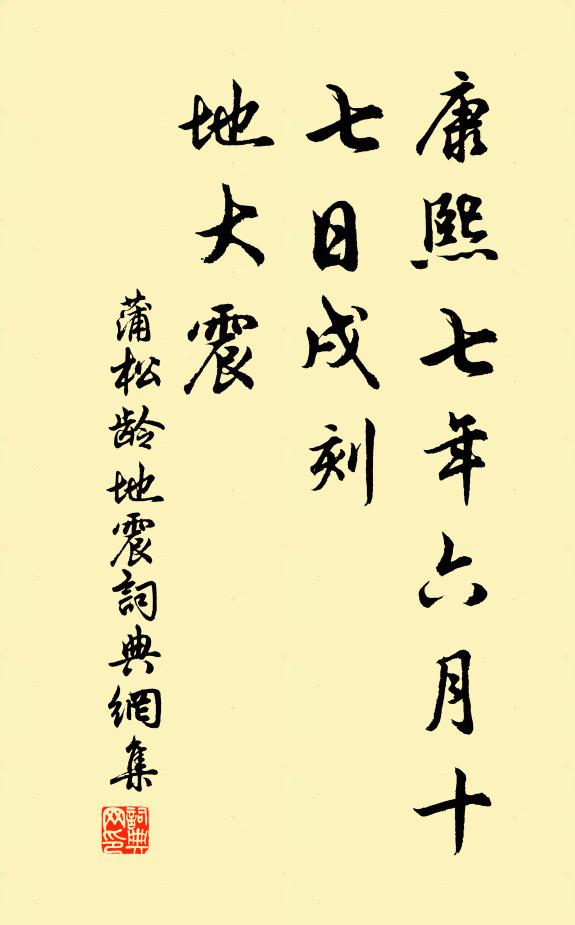 康熙七年六月十
七日戌刻
地大震
蒲松龄地震詞典網集
詞典
网印